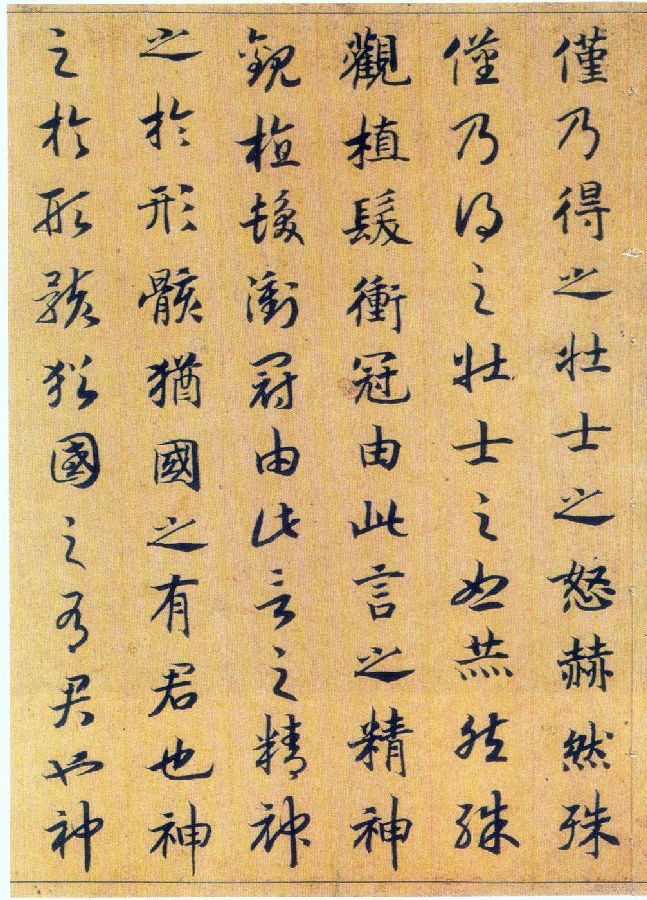 僅乃得之壯士之怒赫然殊
僅乃得之壯士之怒赫然殊
觀植髮衝冠由此言之精神
觀植髮衝冠由此言之精神
之於形骸猶國之有君也神
之於形骸猶國之有君也神